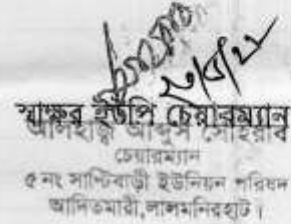 স্বাক্ষর ইউপি চেয়ারম্যান
আলহাজ্ব আব্দুস সোহরাব
চেয়ারম্যান
৫ নং সাপ্টিবাড়ী ইউনিয়ন পরিষদ
আদিতমারী,লালমনিরহাট।